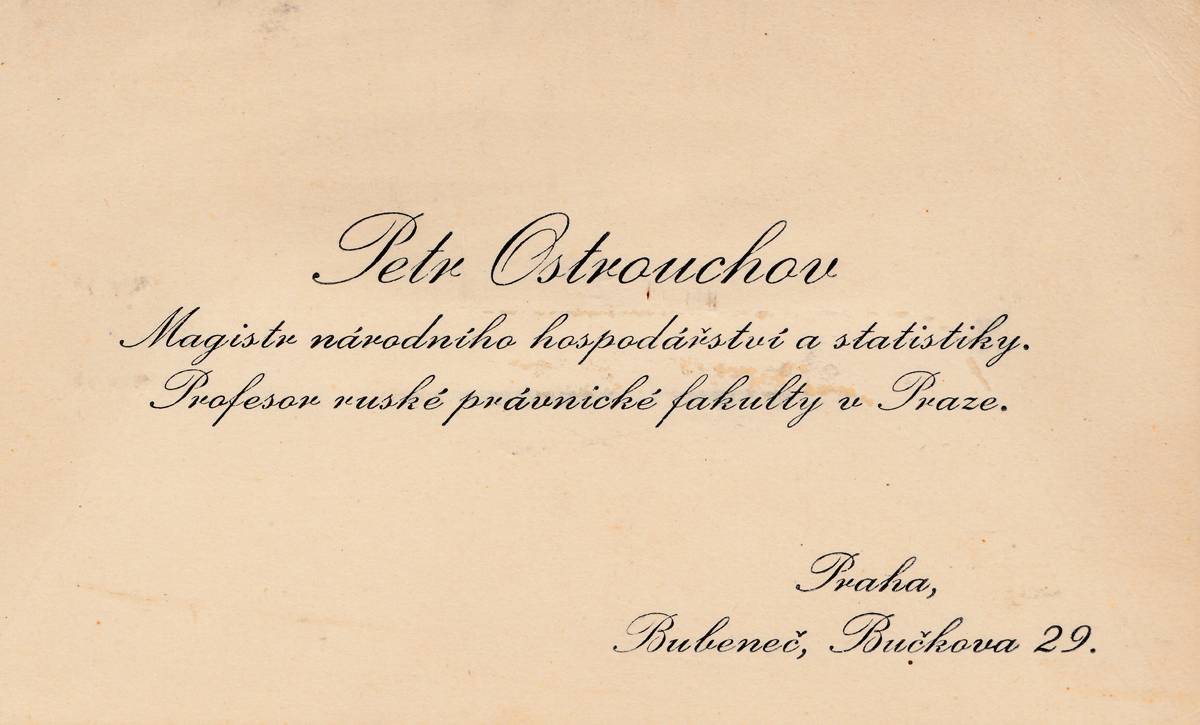 Petr Ostrouchov
Magistr národního hospodářství a statistiky.
Profesor ruské právnické fakulty v Praze.
Praha,
Bubeneč, Bučkova 29.